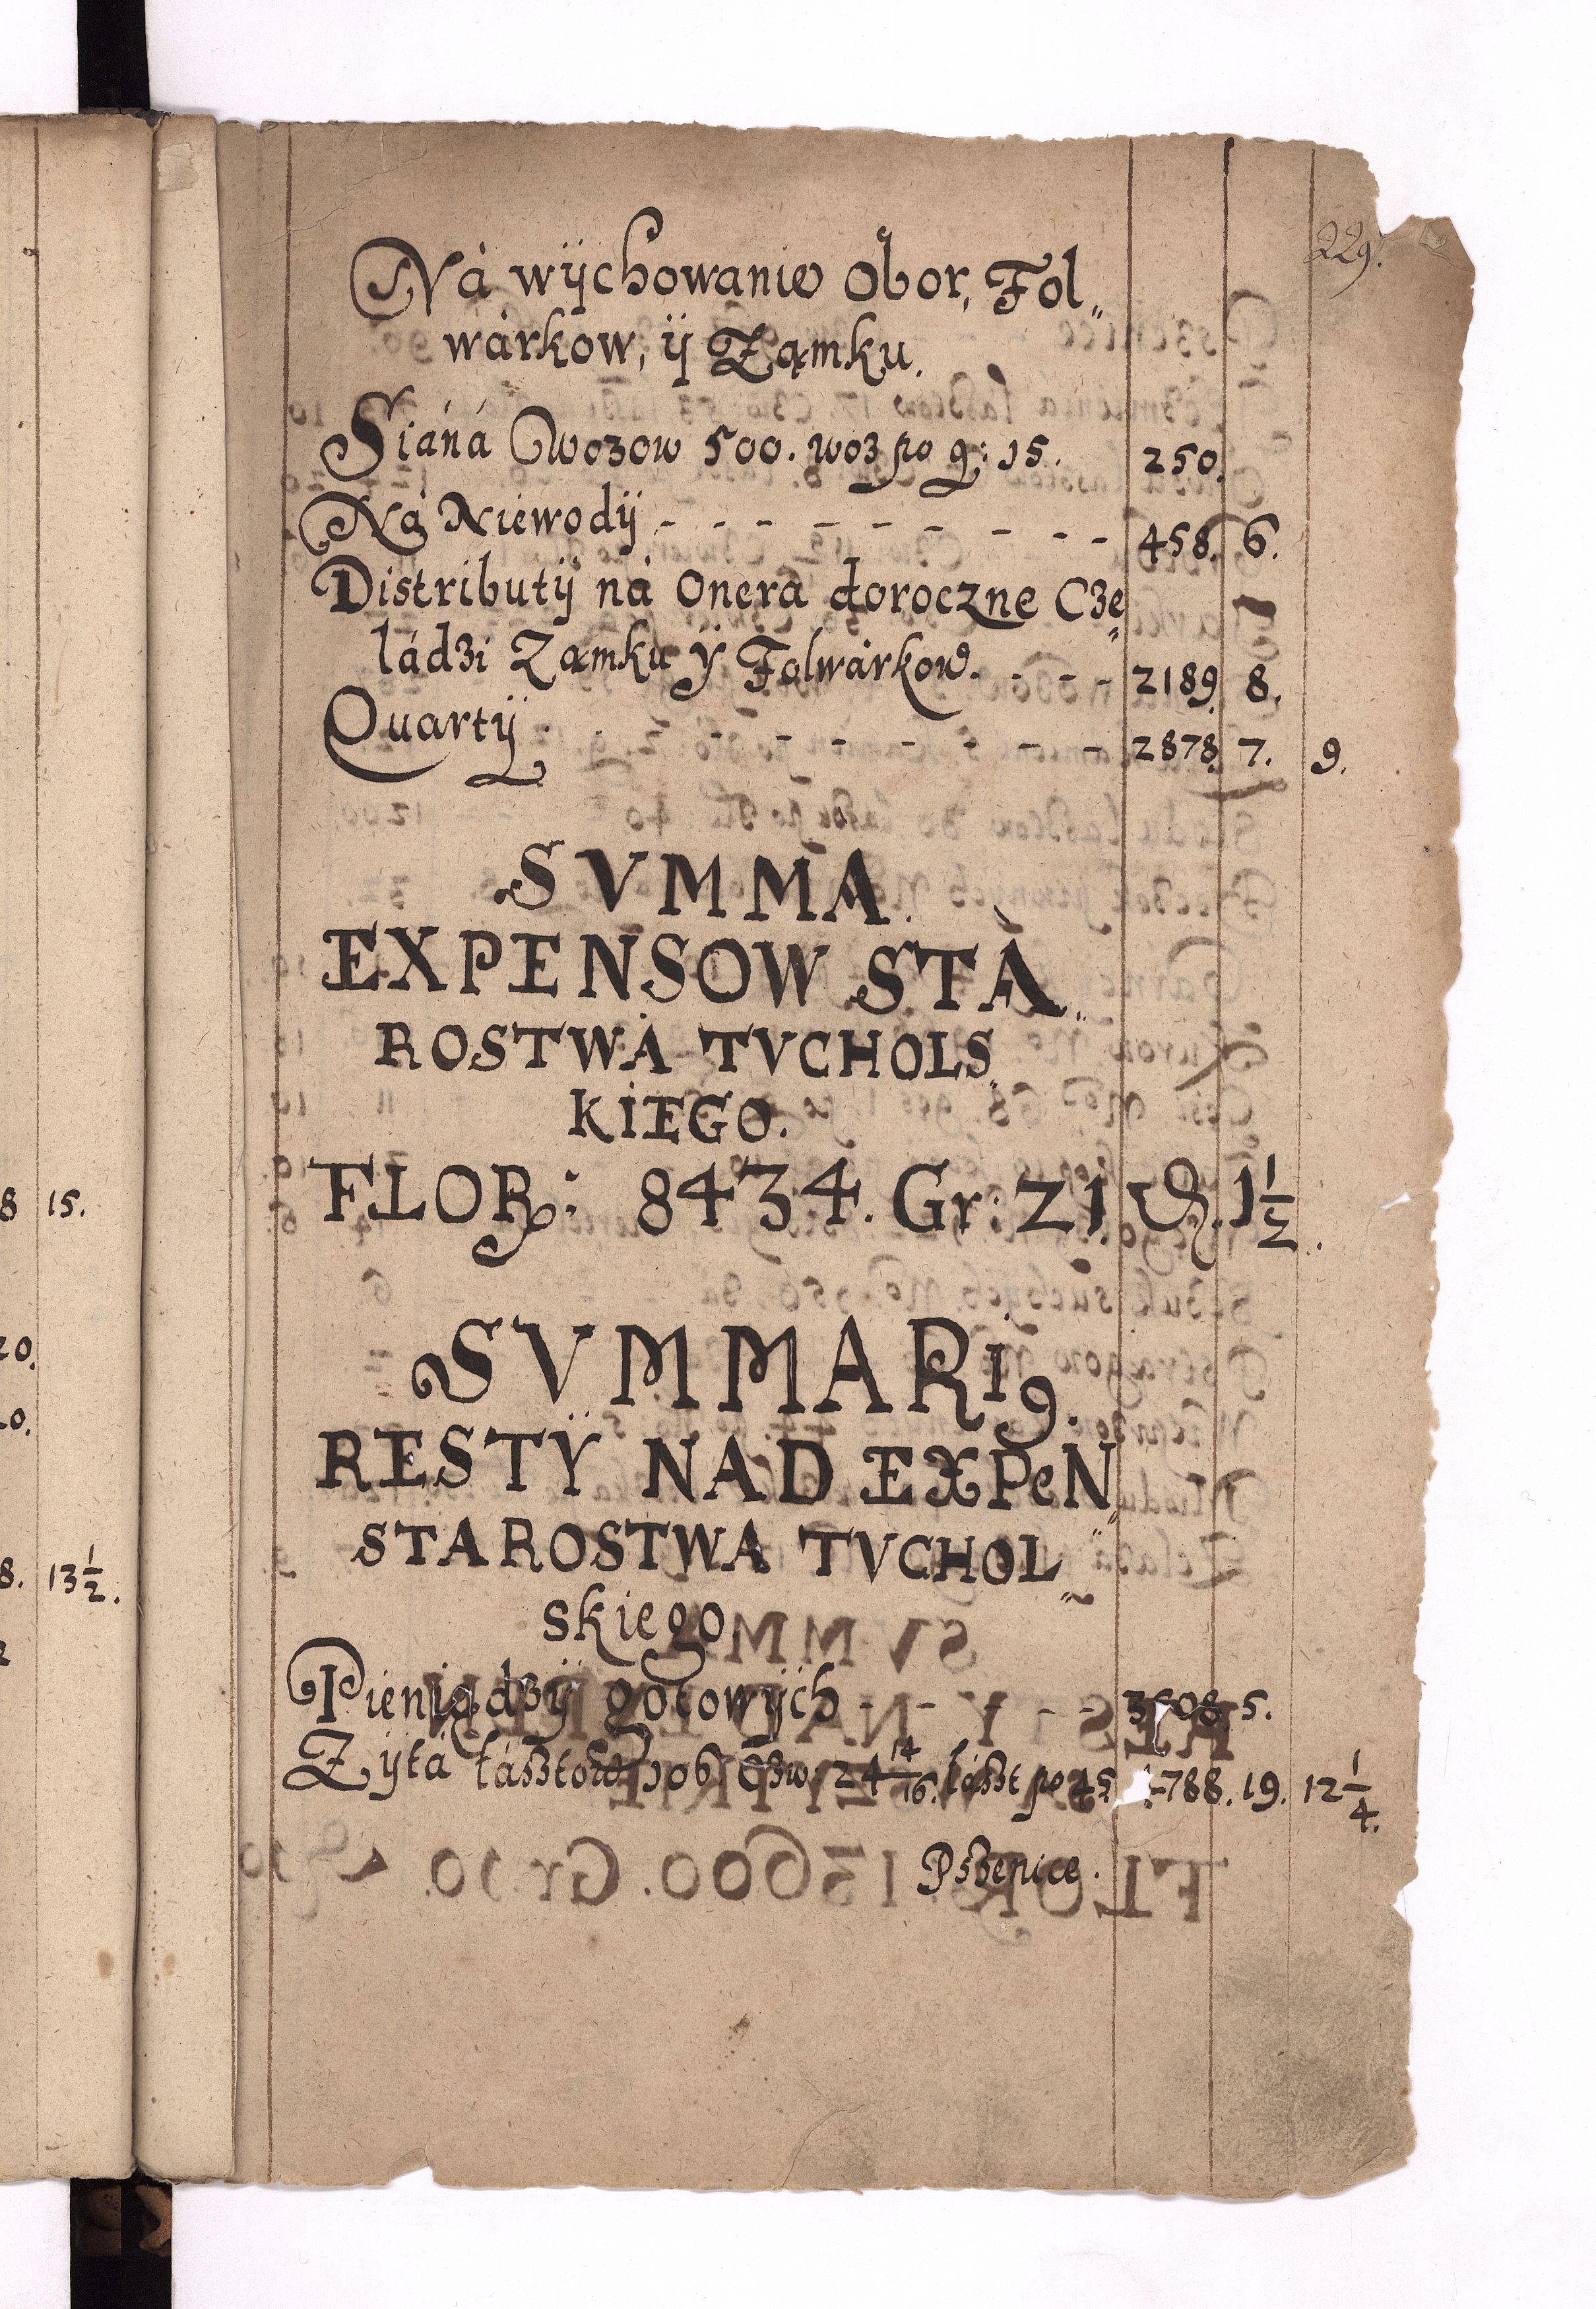 229.
Ná wÿchowanie Obor, Fol„
wárkow, ÿ Zamku.
Siáná Wozow 500. woz po g: 15. 250.
Ná Niewodÿ - - - - - - - - 458. 6.
Distributÿ ná Onera doroczne Cze„
ládzi Zamku ÿ Folwárkow. - - - 2189. 8.
Quartÿ - - - - - - - - 2878. 7. 9.
SVMMA.
EXPENSOW STÀ„
ROSTWÀ TVCHOLS„
KIEGO.
FLOR: 8434. Gr: 21. ₰. 1 1/2.
SVMMARI9.
RESTŸ NAD EXPeN„
STAROSTWA TVCHOL„
skiego
Pieniądzÿ gotowÿch - - - - 3508. 5.
Zÿtá łásztow 106 Czw: 24 14/16. łászt po 45 788. 19. 12 1/4.
Pszenice.
8 15.
20.
20.
8. 13 1/2.
2